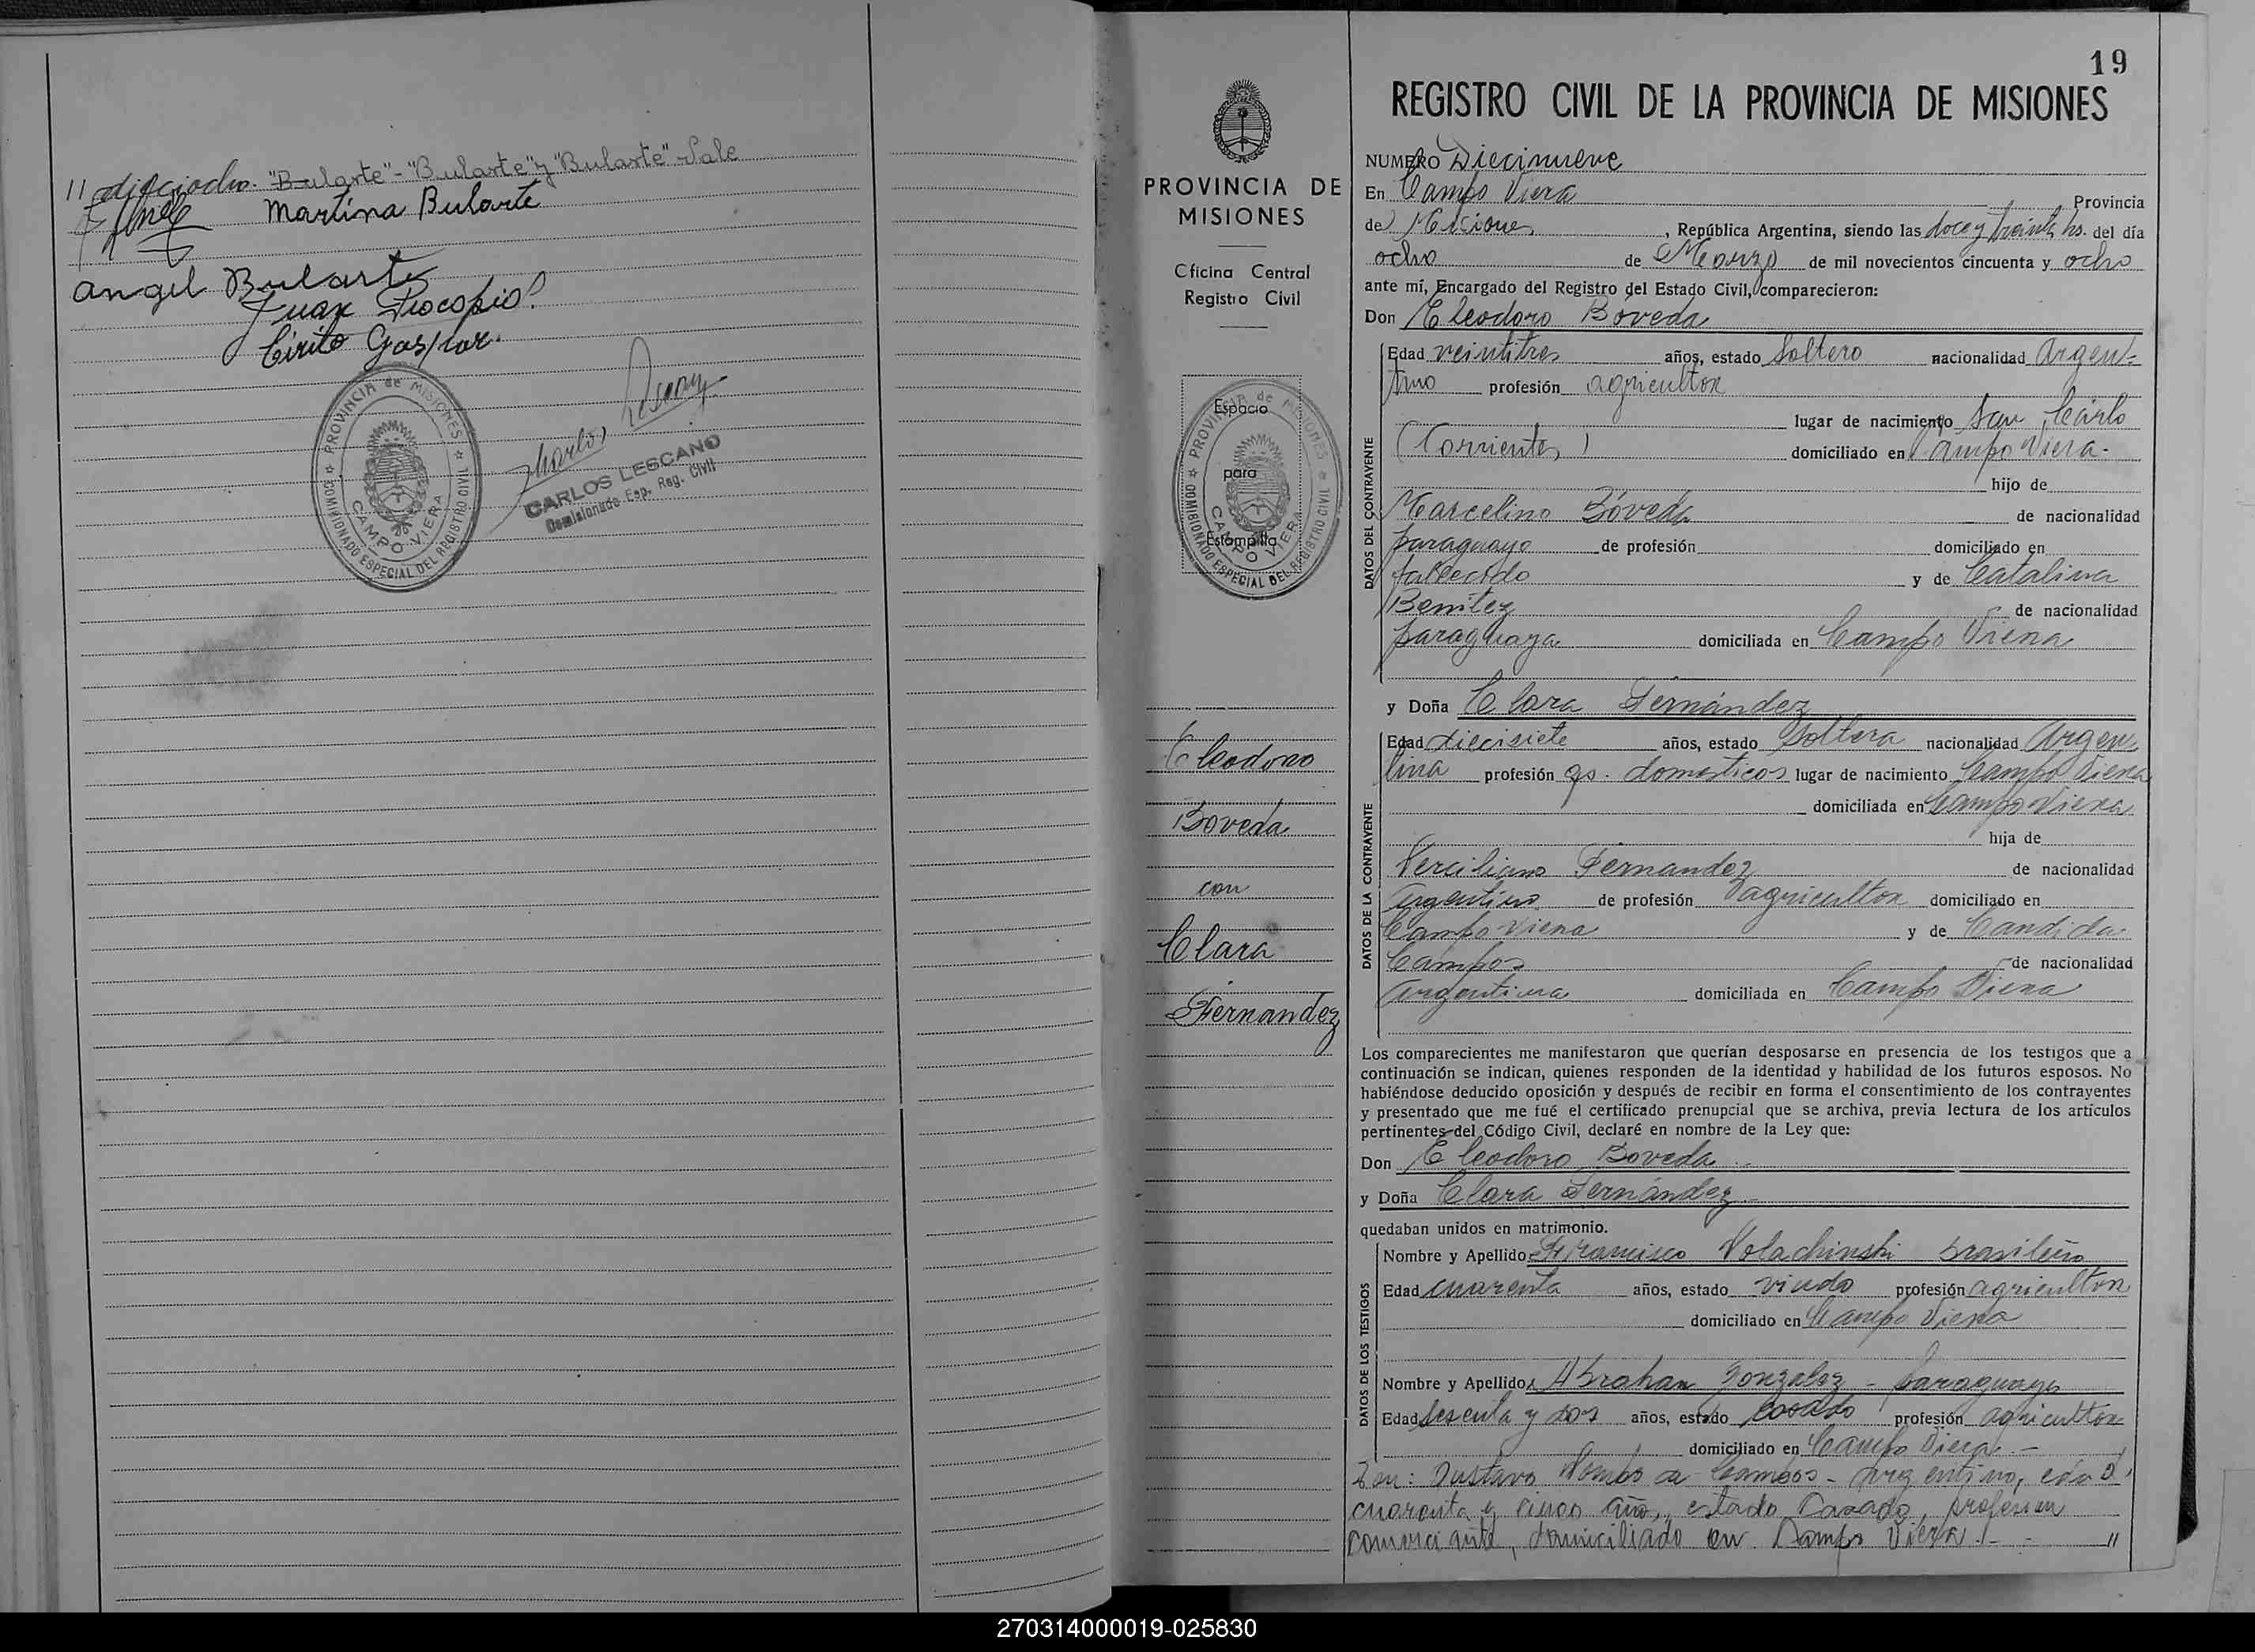 11 dieciocho. "Bularte"-"Bularte" y "Bularte" Vale
Martina Bularte
angel Bularte
Juan Procopio
Cirilo Gaspar.
PROVINCIA de MISIONES
COMISIONADO ESPECIAL DEL REGISTRO CIVIL
CAMPO VIERA
CARLOS LESCANO
Comisionado Esp. Reg. Civil
PROVINCIA DE
MISIONES
Oficina Central
Registro Civil
Espacio
para
Estampilla
PROVINCIA de MISIONES
COMISIONADO ESPECIAL DEL REGISTRO CIVIL
CAMPO VIERA
Eleodoro
Boveda
con
Clara
Fernandez
19
REGISTRO CIVIL DE LA PROVINCIA DE MISIONES
NUMERO Diecinueve
En Campo Viera Provincia
de Misiones, República Argentina, siendo las doce y treinta hs. del día
ocho de Marzo de mil novecientos cincuenta y ocho
ante mí, Encargado del Registro del Estado Civil, comparecieron:
Don Eleodoro Bóveda
DATOS DEL CONTRAYENTE
Edad veintitres años, estado Soltero nacionalidad Argen-
tino profesión agricultor
lugar de nacimiento San Carlo
(Corrientes) domiciliado en Campo Viera.
hijo de
Marcelino Bóveda de nacionalidad
paraguayo de profesión domiciliado en
fallecido y de Catalina
Benitez de nacionalidad
paraguaya domiciliada en Campo Viera
y Doña Clara Fernández
DATOS DE LA CONTRAYENTE
Edad diecisiete años, estado Soltera nacionalidad Argen
tina profesión qs. domesticos lugar de nacimiento Campo Viera
domiciliada en Campo Viera
hija de
Verciliano Fernandez de nacionalidad
argentino de profesión agricultor domiciliado en
Campo Viera y de Candida
Campos de nacionalidad
argentina domiciliada en Campo Viera
Los comparecientes me manifestaron que querían desposarse en presencia de los testigos que a
continuación se indican, quienes responden de la identidad y habilidad de los futuros esposos. No
habiéndose deducido oposición y después de recibir en forma el consentimiento de los contrayentes
y presentado que me fué el certificado prenupcial que se archiva, previa lectura de los artículos
pertinentes del Código Civil, declaré en nombre de la Ley que:
Don Eleodoro Boveda
y Doña Clara Fernández
quedaban unidos en matrimonio.
DATOS DE LOS TESTIGOS
Nombre y Apellido Francisco Volachinski brasileño
Edad cuarenta años, estado viudo profesión agricultor
domiciliado en Campo Viera
Nombre y Apellido Abrahan Gonzalez - paraguayo
Edad sesenta y dos años, estado casado profesión agricultor
domiciliado en Campo Viera. -
Gustavo Campos - Argentino, edad
cuarenta y cinco año, estado Casado, profesion
comerciante, domiciliado en Campo Viera.- - "
270314000019-025830